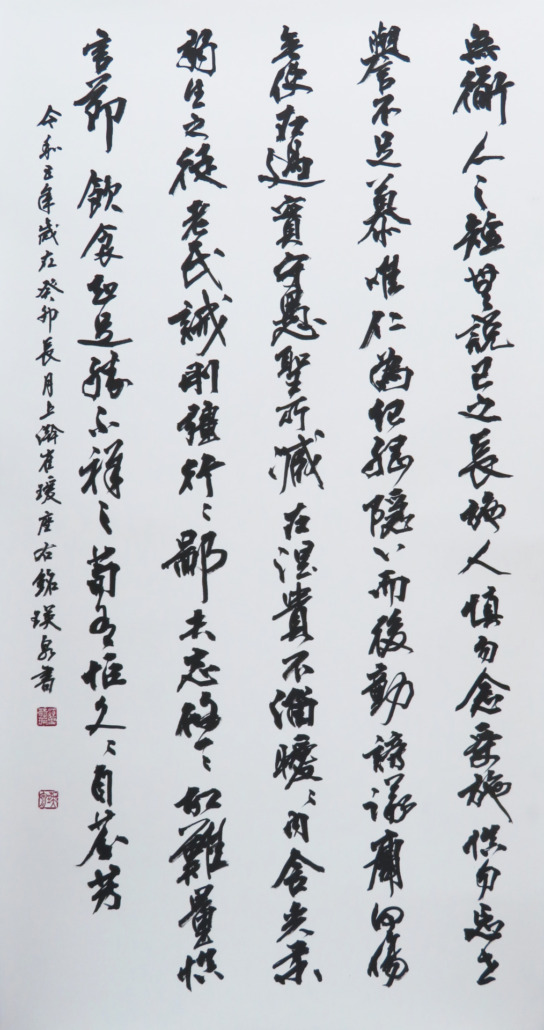 無衟人之短無說己之長施人慎勿念受施慎勿忘世
譽不足慕唯仁為紀綱隱心而後動謗議庸何傷
無使名過實守愚聖所臧在涅貴不淄曖〻内含光柔
弱生之徒老氏誡剛強行〻鄙夫志悠〻故難量慎
言節飲食知足勝不祥之苟有恒久〻自芬芳
令和五年歳在癸卯長月上澣崔瑗座右銘瑛泉書